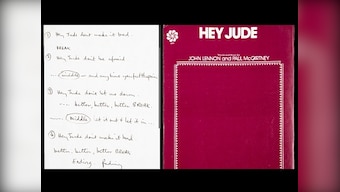 1) Hey Jude don't make it bad.
BREAK
2) Hey Jude don't be afraid
middle
3) Hey Jude don't let me down
better, better, better BREAK
middle let it out & let it in
4) Hey Jude don't make it bad
better, better, better BREAK
fading, fading
HEY JUDE
JOHN LENNON and PAUL McCARTNEY